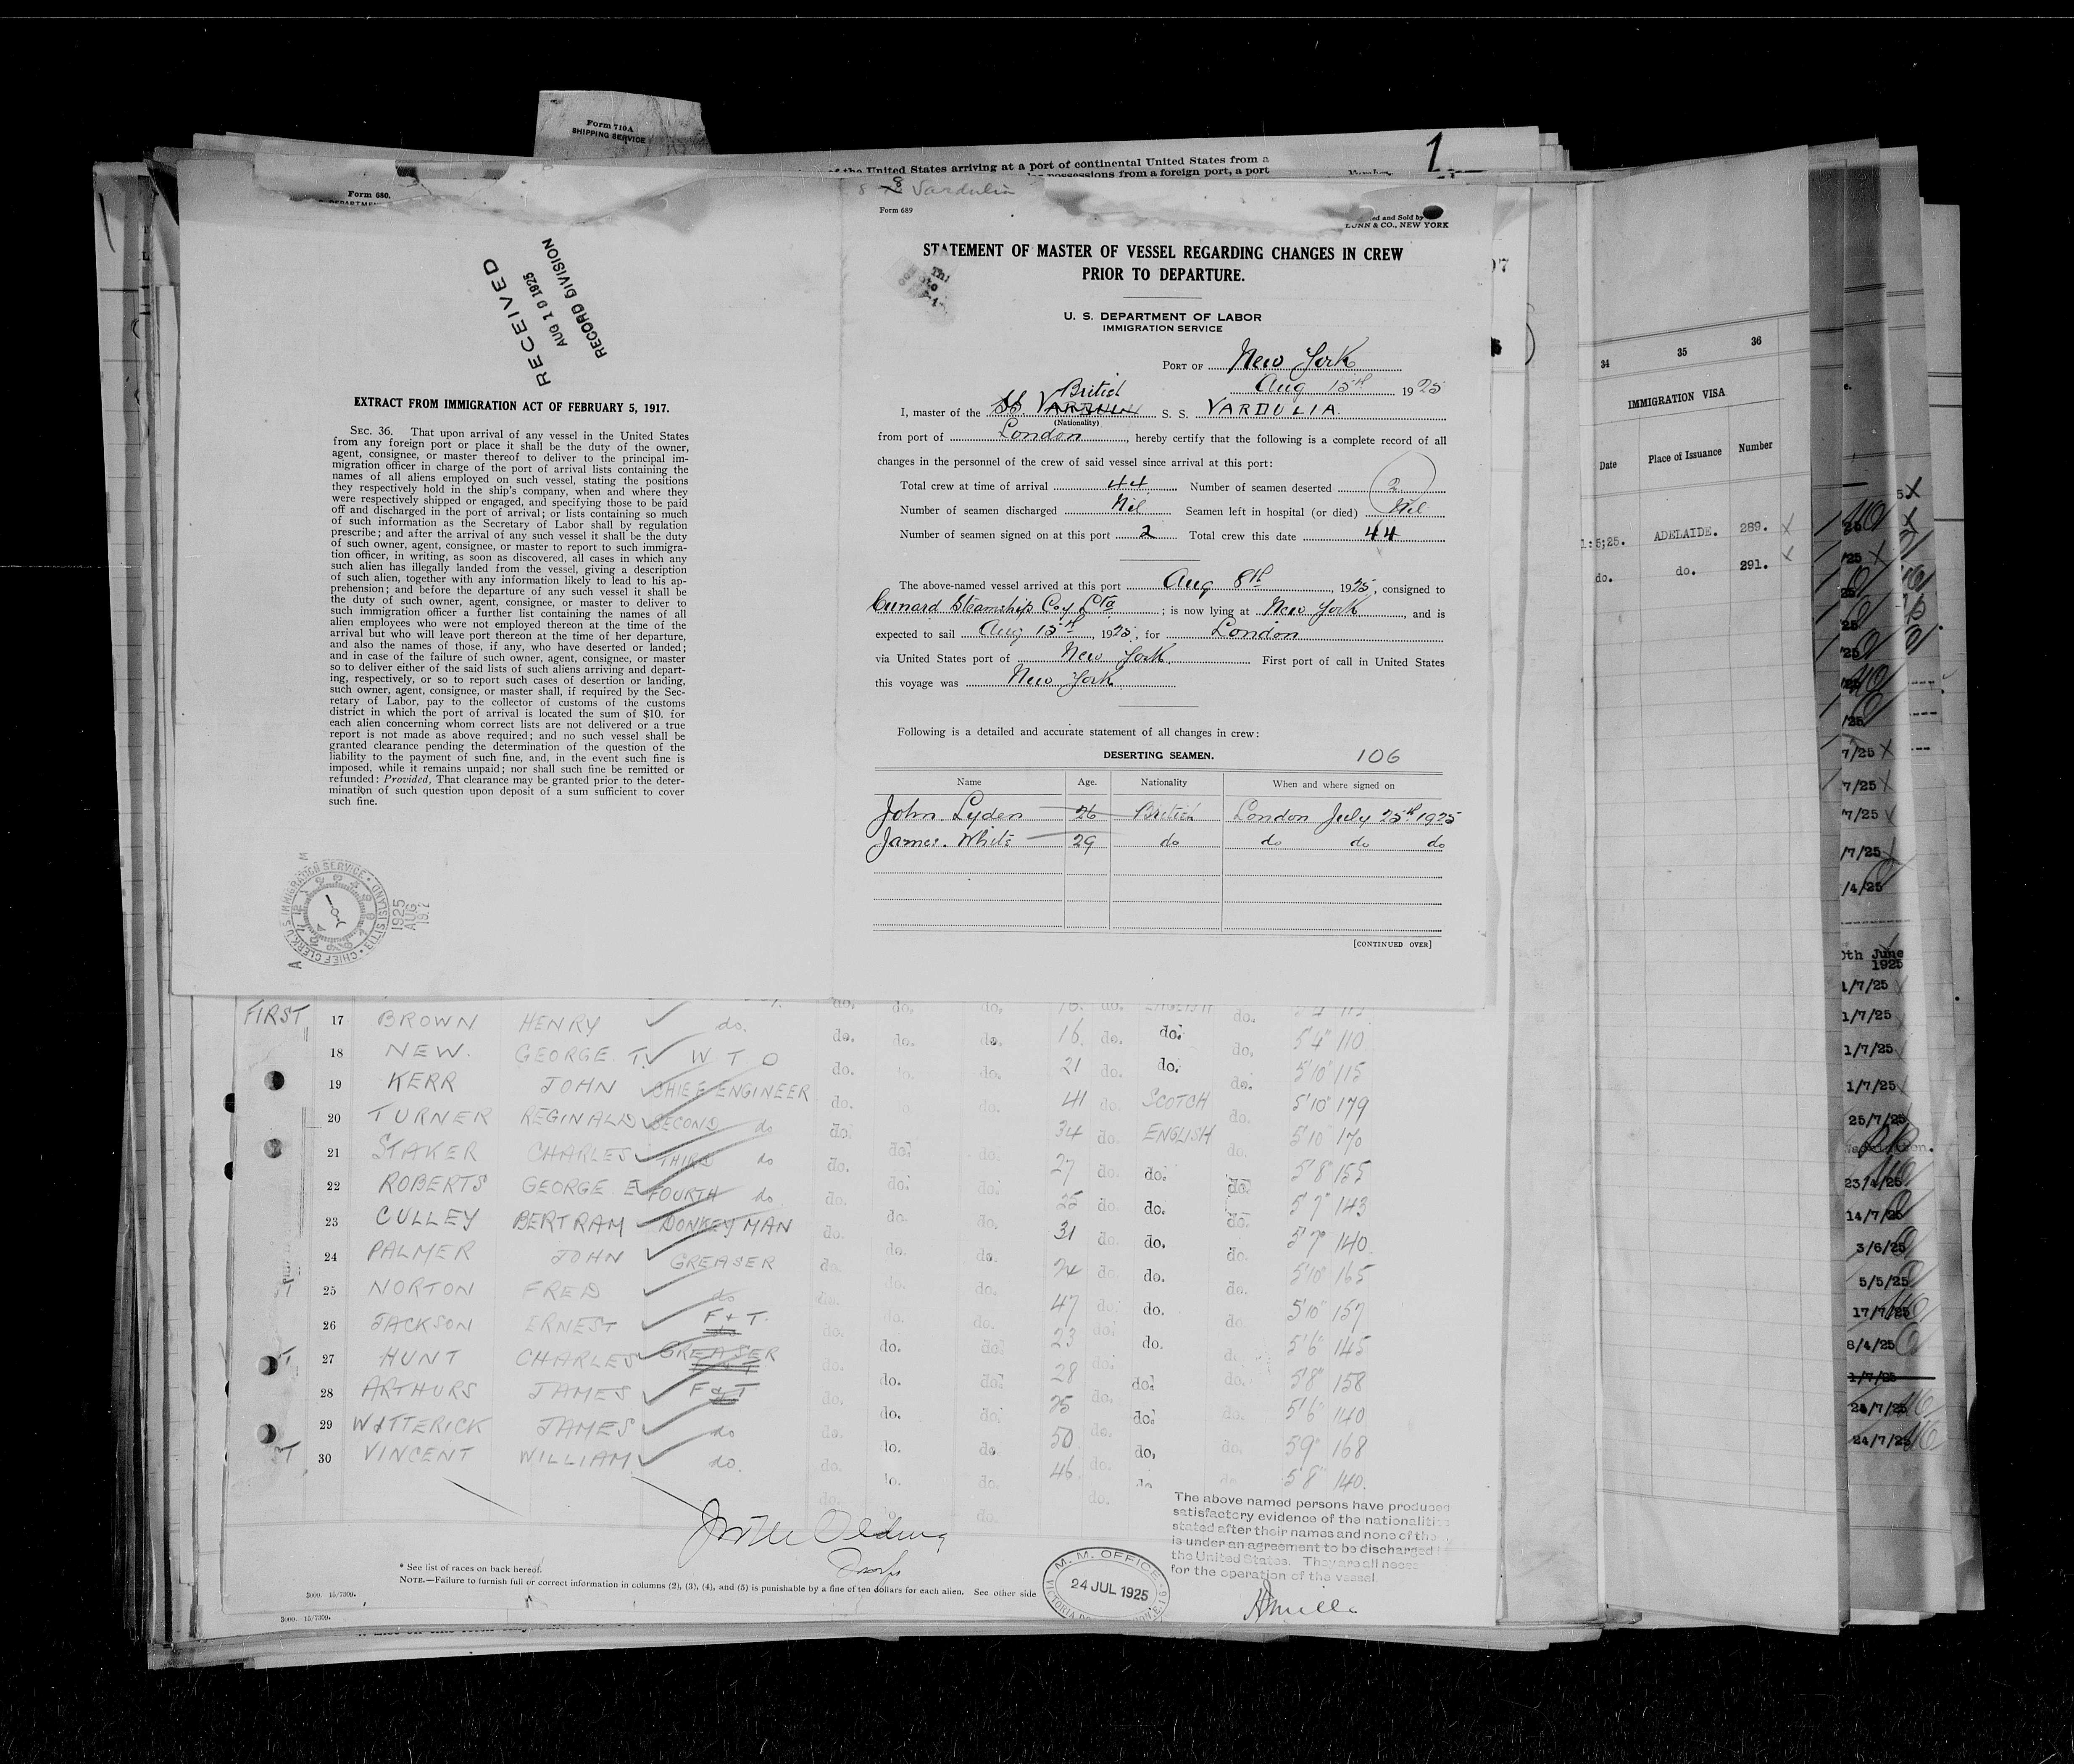 Form 710A
SHIPPING SERVICE
1
of the United States arriving at a port of continental United States from a
possessions from a foreign port, a port
Form 680.
RECEIVED
AUG 19 1925
RECORD DIVISION
EXTRACT FROM IMMIGRATION ACT OF FEBRUARY 5, 1917.
SEC. 36. That upon arrival of any vessel in the United States
from any foreign port or place it shall be the duty of the owner,
agent, consignee, or master thereof to deliver to the principal im-
migration officer in charge of the port of arrival lists containing the
names of all aliens employed on such vessel, stating the positions
they respectively hold in the ship's company, when and where they
were respectively shipped or engaged, and specifying those to be paid
off and discharged in the port of arrival; or lists containing so much
of such information as the Secretary of Labor shall by regulation
prescribe; and after the arrival of any such vessel it shall be the duty
of such owner, agent, consignee, or master to report to such immigra-
tion officer, in writing, as soon as discovered, all cases in which any
such alien has illegally landed from the vessel, giving a description
of such alien, together with any information likely to lead to his ap-
prehension; and before the departure of any such vessel it shall be
the duty of such owner, agent, consignee, or master to deliver to
such immigration officer a further list containing the names of all
alien employees who were not employed thereon at the time of the
arrival but who will leave port thereon at the time of her departure,
and also the names of those, if any, who have deserted or landed;
and in case of the failure of such owner, agent, consignee, or master
so to deliver either of the said lists of such aliens arriving and depart-
ing, respectively, or so to report such cases of desertion or landing,
such owner, agent, consignee, or master shall, if required by the Sec-
retary of Labor, pay to the collector of customs of the customs
district in which the port of arrival is located the sum of $10. for
each alien concerning whom correct lists are not delivered or a true
report is not made as above required; and no such vessel shall be
granted clearance pending the determination of the question of the
liability to the payment of such fine, and, in the event such fine is
imposed, while it remains unpaid; nor shall such fine be remitted or
refunded: Provided, That clearance may be granted prior to the deter-
mination of such question upon deposit of a sum sufficient to cover
such fine.
CHIEF CLERK U.S. IMMIGRATION SERVICE
1925
AUG
Vardulia
Form 689
ed and Sold by
NEW YORK
STATEMENT OF MASTER OF VESSEL REGARDING CHANGES IN CREW
PRIOR TO DEPARTURE.
U. S. DEPARTMENT OF LABOR
IMMIGRATION SERVICE
PORT OF New York
Aug 15th 1925
British
I, master of the SS S. S. VARDULIA
(Nationality)
from port of London, hereby certify that the following is a complete record of all
changes in the personnel of the crew of said vessel since arrival at this port:
Total crew at time of arrival 44 Number of seamen deserted 2
Number of seamen discharged Nil Seamen left in hospital (or died) Nil
Number of seamen signed on at this port 2 Total crew this date 44
The above-named vessel arrived at this port Aug 8th, 1925, consigned to
Cunard Steamship Coy Ltd; is now lying at New York, and is
expected to sail Aug 15th, 1925, for London
via United States port of New York First port of call in United States
this voyage was New York
Following is a detailed and accurate statement of all changes in crew:
DESERTING SEAMEN. 106
Name Age. Nationality When and where signed on
John Lyden 26 British London July 25th 1925
James White 29 do do do do
[CONTINUED OVER]
34 35 36
IMMIGRATION VISA
Date Place of Issuance Number
1:5;25. ADELAIDE. 289. X
do. do. 291. X
FIRST 17 BROWN HENRY do. do. do. do. 16. do. do. do. 5'4" 110
18 NEW. GEORGE T. W T O do. do. 21 do. do. do. 5'10" 115
19 KERR JOHN CHIEF ENGINEER do. 41 do. SCOTCH do. 5'10" 179
20 TURNER REGINALD SECOND do do. do. do. 34 do. ENGLISH do. 5'10" 170
21 STAKER CHARLES THIRD do do. do. do. 27 do. do. do. 5'8" 155
22 ROBERTS GEORGE E FOURTH do do. do. do. 25 do. do. do. 5'7" 143
23 CULLEY BERTRAM DONKEYMAN do. do. do. 31 do. do. do. 5'7" 140.
24 PALMER JOHN GREASER do. do. do. 24 do. do. do. 5'10" 165
25 NORTON FRED do do. do. do. 47 do. do. do. 5'10" 157
26 JACKSON ERNEST F & T. do. do. do. 23 do. do. do. 5'6" 145
27 HUNT CHARLES GREASER do. do. do. 28 do. do. do. 5'8" 158
28 ARTHURS JAMES F & T do. do. do. 25 do. do. do. 5'6" 140
29 WITTERICK JAMES do do. do. do. 50 do. do. do. 5'9" 168
30 VINCENT WILLIAM do. do. do. do. 46 do. do. 5'8" 140.
The above named persons have produced
satisfactory evidence of the nationalities
stated after their names and none of the
is under an agreement to be discharged
the United States. They are all neces
for the operation of the vessel
M. M. OFFICE
24 JUL 1925
* See list of races on back hereof.
NOTE.—Failure to furnish full or correct information in columns (2), (3), (4), and (5) is punishable by a fine of ten dollars for each alien. See other side
3000. 15/7099.
3000. 15/7099.
0th June
1925
1/7/25
1/7/25
1/7/25
1/7/25
25/7/25
23/4/25
14/7/25
3/6/25
5/5/25
17/7/25
8/4/25
1/7/25
24/7/25
24/7/25